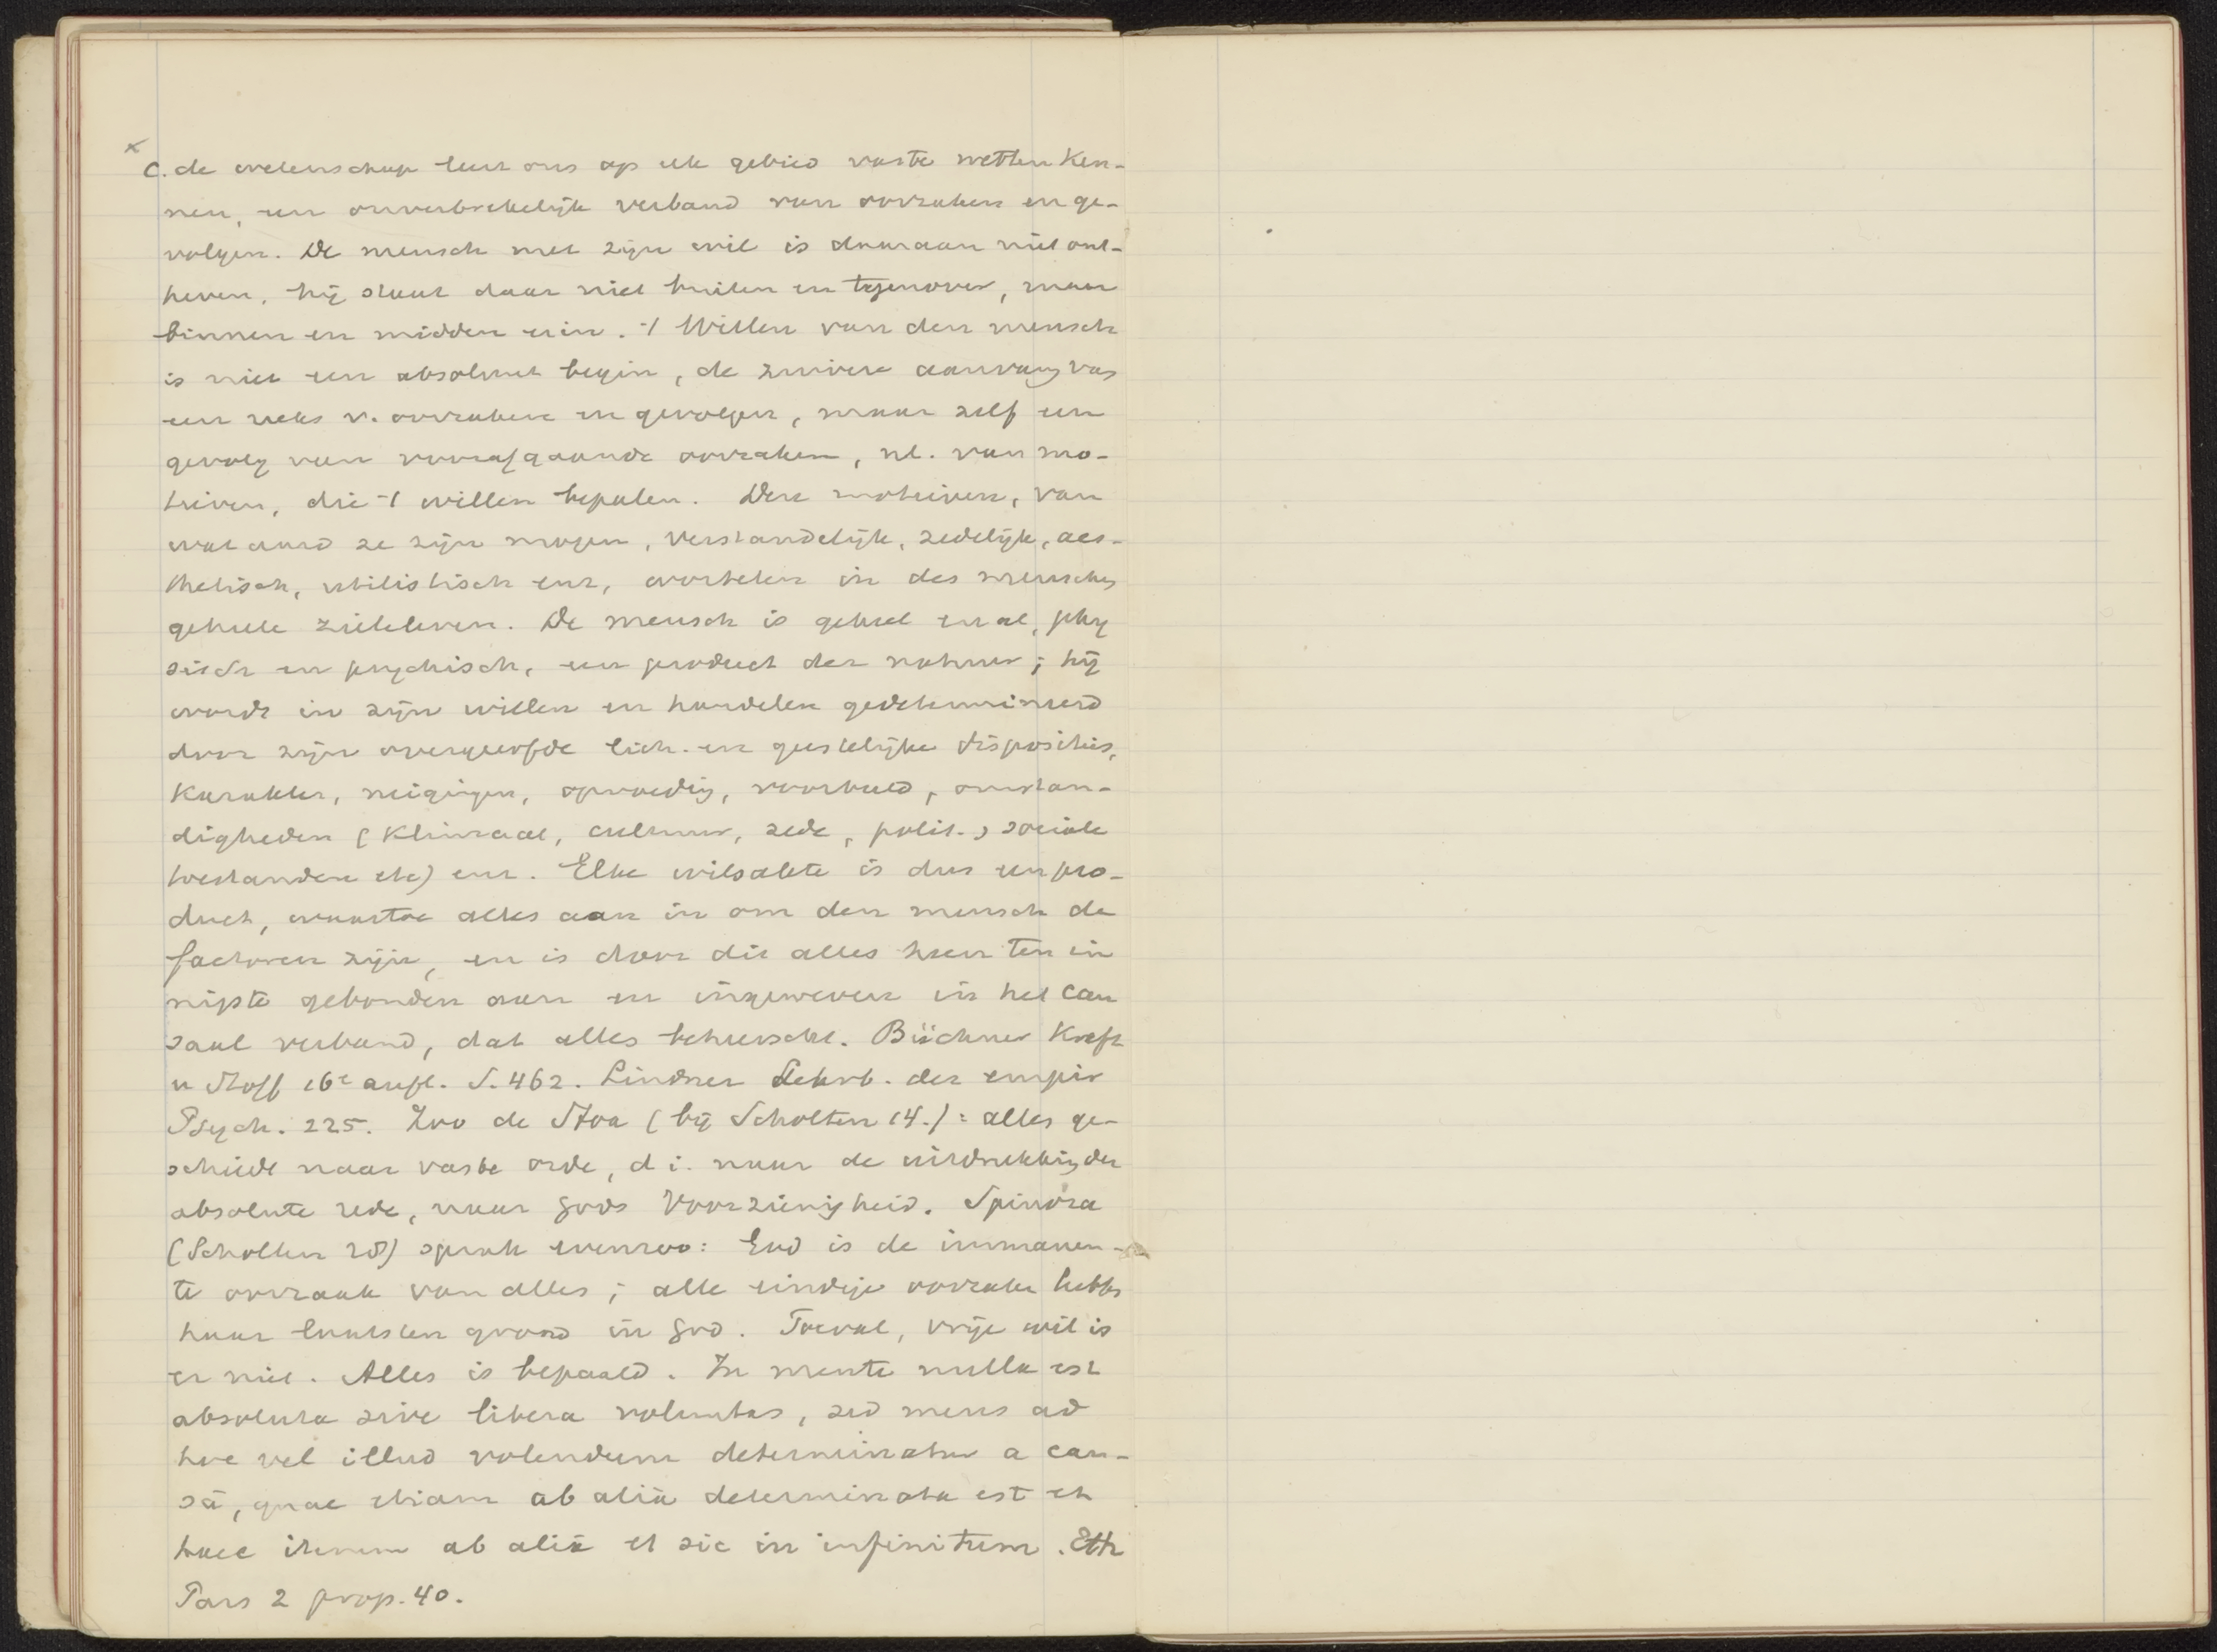 x
c. de wetenschap leert ons op elk gebied vaste wetten ken-
nen, een onverbrekelijk verband van oorzaken en ge-
volgen. De mensch met zijn wil is daaraan niet ont-
heven, hij staat daar niet buiten en tegenover, maar
binnen en midden erin. 't Willen van den mensch
is niet een absoluut begin, de zuivere aanvang van
een reeks v. oorzaken en gevolgen, maar zelf een
gevolg van voorafgaande oorzaken, nl. van mo-
tieven, die 't willen bepalen. Deze motieven, van
wat aard ze zijn mogen, verstandelijk, zedelijk, aes-
thetisch, utilistisch enz, wortelen in des menschen
geheele zieleleven. De mensch is geheel en al, phy
sisch en psychisch, een product der natuur; hij
wordt in zijn willen en handelen gedetermineerd
door zijn overgeerfde lich. en geestelijke disposities,
karakter, neigingen, opvoeding, voorbeeld, omstan-
digheden (klimaat, cultuur, zede, polit., sociale
toestanden etc) enz. Elke wilsakte is dus een pro-
duct, waartoe alles aan in om den mensch de
factoren zijn, en is door dit alles heen ten in
nigste gebonden aan en ingeweven in het cau
saal verband, dat alles beheerscht. Büchner Kraft
u Stoff 16e aufl. S. 462. Lindner Lehrb. der empir
Psych. 225. Zoo de Stoa (bij Scholten 14.): alles ge-
schiedt naar vaste orde, d i. naar de uitdrukking der
absolute rede, naar Gods Voorzienigheid. Spinoza
(Scholten 28) sprak evenzoo: God is de immanen-
te oorzaak van alles; alle eindige oorzaken hebben
haar laatsten grond in God. Toeval, vrije wil is
er niet. Alles is bepaald. In mente nulla est
absoluta sive libera voluntas, sed mens ad
hoc vel illud volendum determinatur a cau-
sâ, quae etiam ab aliâ determinata est et
haec iterum ab aliâ et sic in infinitum. Eth
Pars 2 prop. 40.